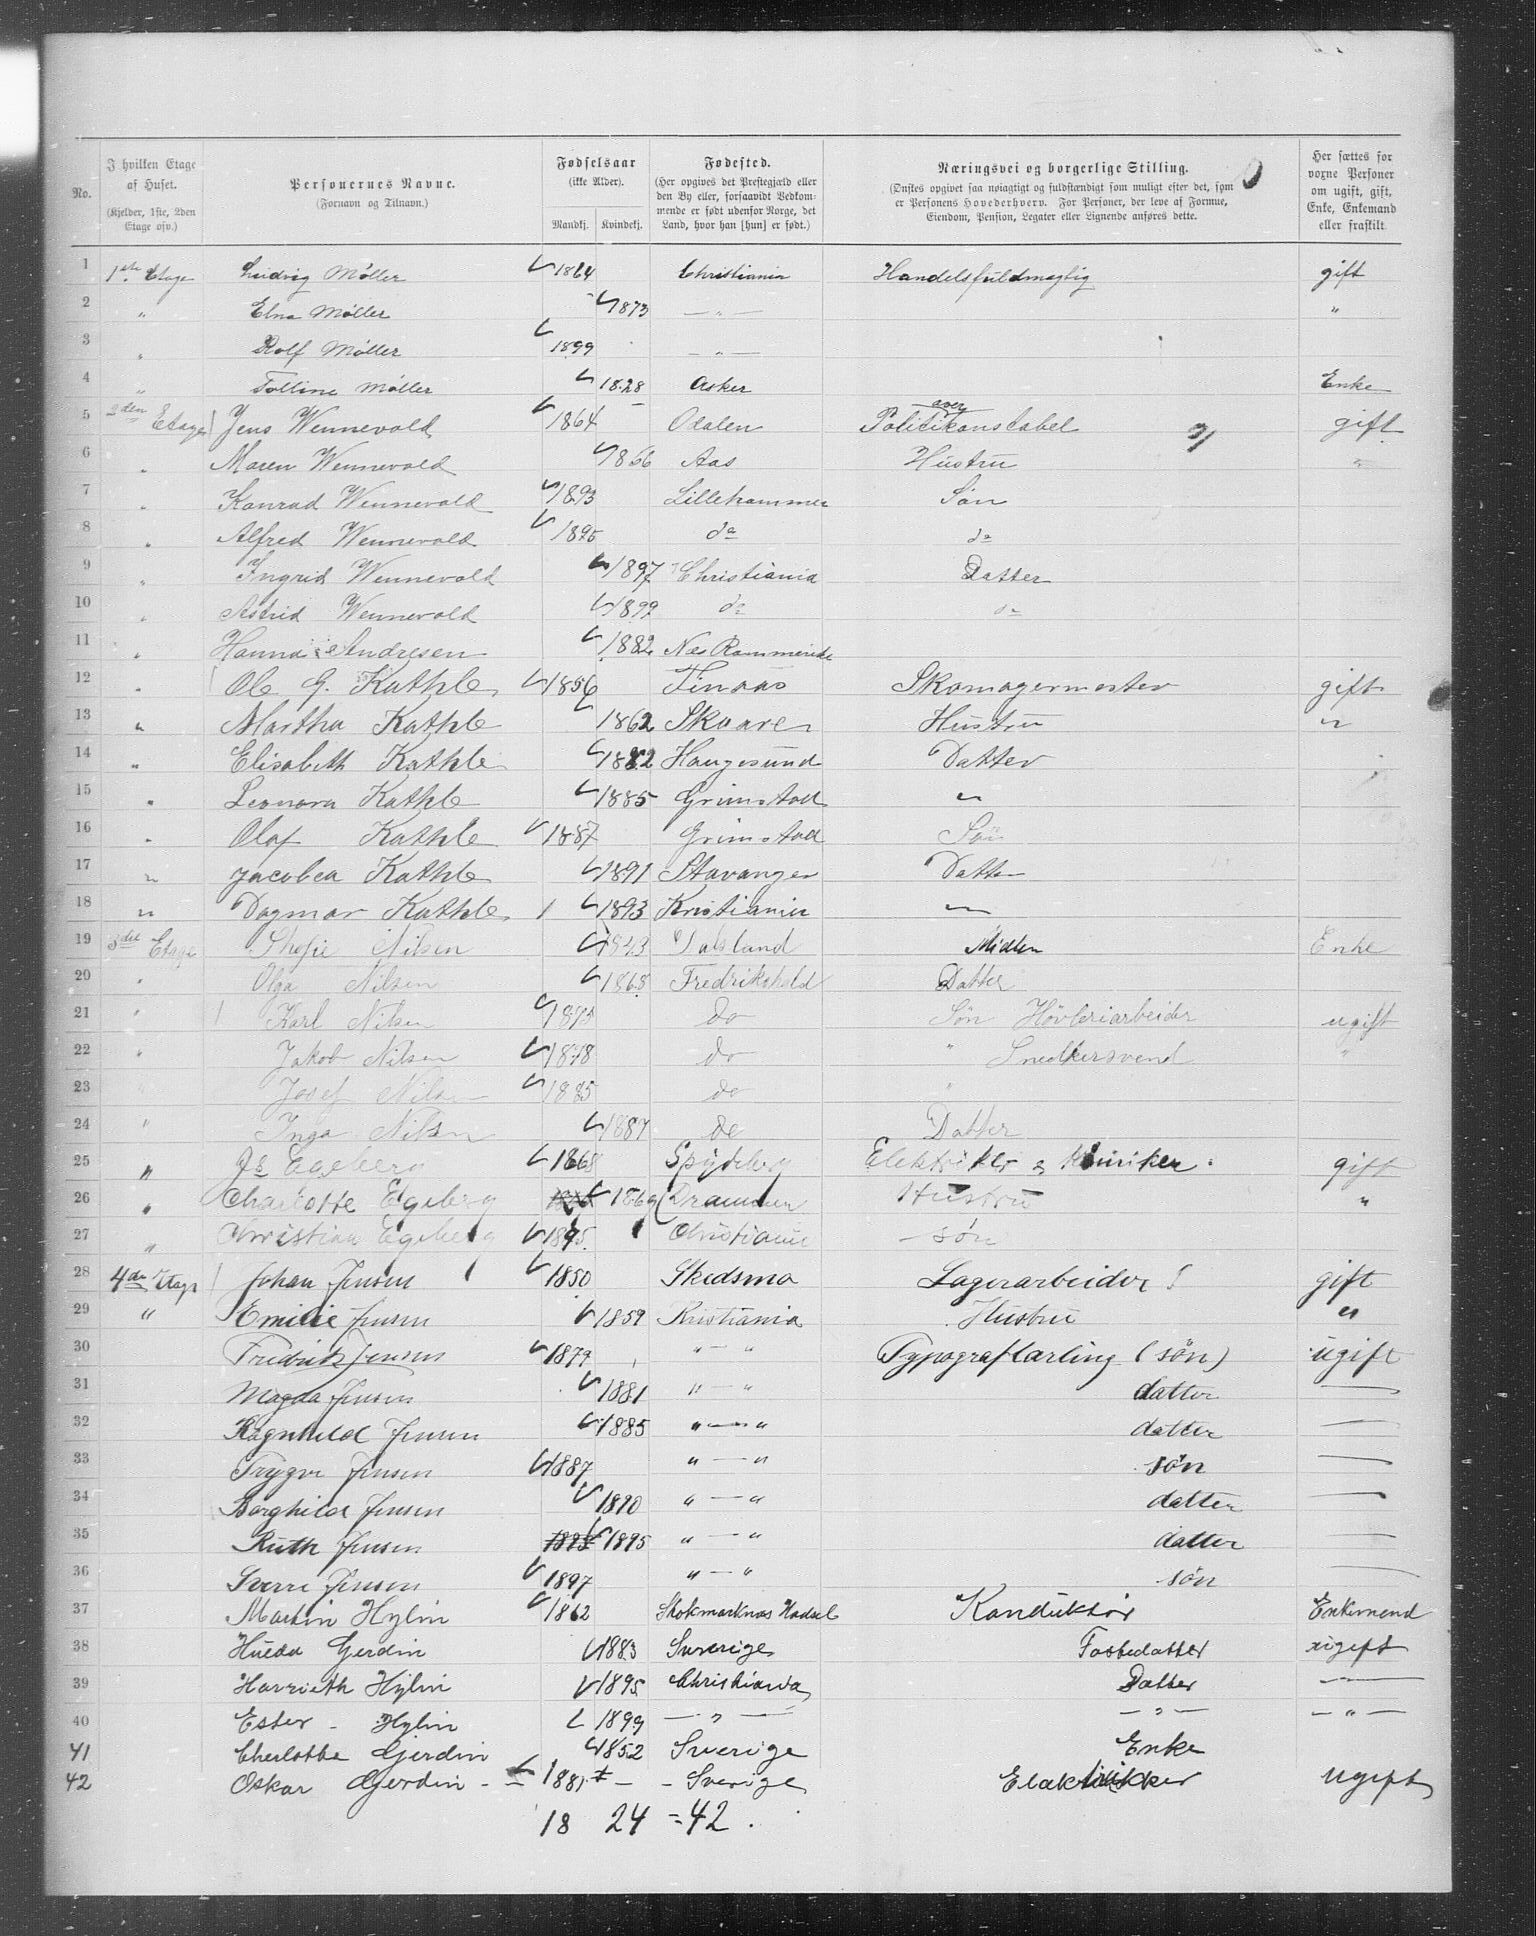 No. | I hvilken Etage af Huset. (Kjelder, 1ste, 2den Etage osv.) | Personernes Navne. (Fornavn og Tilnavn.) | Fødselsaar (ikke Alder). Mandkj. Kvindekj. | Fødested. (Her opgives det Prestegjæld eller den By eller, forsaavidt Vedkommende er født udenfor Norge, det Land, hvor han [hun] er født.) | Næringsvei og borgerlige Stilling. (Ønskes opgivet saa nøiagtigt og fuldstændigt som muligt efter det, som er Personens Hovederhverv. For Personer, der leve af Formue, Eiendom, Pension, Legater eller Lignende anføres dette.) | Her sættes for voxne Personer om ugift, gift, Enke, Enkemand eller fraskilt.
1 1ste Etage Ludvig Møller 1864 Christiania Handelsfuldmægtig gift
2 " Elna Møller 1873 — " — "
3 " Rolf Møller 1899 — " —
4 " Tolline Møller 1828 Asker Enke
5 2den Etage Jens Wennevold 1864 Odalen Politioverkonstabel gift
6 " Maren Wennevold 1866 Aas Hustru "
7 " Konrad Wennevold 1893 Lillehammer Søn
8 " Alfred Wennevold 1895 do do
9 " Ingrid Wennevold 1897 Christiania Datter
10 " Astrid Wennevold 1899 do do
11 " Hanna Andresen 1882 Nes Romerike
12 " Ole G. Kathle 1856 Finaas Skomagermester gift
13 " Martha Kathle 1862 Skaare Hustru "
14 " Elisabeth Kathle 1882 Haugesund Datter
15 " Leonora Kathle 1885 Grimstad "
16 " Olaf Kathle 1887 Grimstad Søn
17 " Jacobea Kathle 1891 Stavanger Datter
18 " Dagmar Kathle 1893 Kristiania "
19 3die Etage Nilsen 1843 Dalsland Enke
20 " Olga Nilsen 1868 Fredrikshald Datter
21 " Karl Nilsen 1875 do Søn Høvleriarbeider ugift
22 " Jakob Nilsen 1878 do " Snedkersvend "
23 " Josef Nilsen 1885 do "
24 " Inga Nilsen 1887 do Datter
25 " Js Egeberg 1868 Spydeberg Elektriker gift
26 " Charlotte Egeberg 1869 Drammen Hustru "
27 " Christian Egeberg 1895 Christiania søn
28 4de Etage Johan Jensen 1850 Skedsmo Lagerarbeider gift
29 " Emilie Jensen 1859 Kristiania Hustru "
30 Fredrik Jensen 1879 " — " Typograflærling (søn) ugift
31 Magda Jensen 1881 " — " datter —
32 Ragnhild Jensen 1885 " — " datter —
33 Trygve Jensen 1887 " — " søn —
34 Borghild Jensen 1890 " — " datter —
35 Ruth Jensen 1895 " — " datter —
36 Sverre Jensen 1897 " — " søn —
37 Martin Hylin 1862 Stokmarknæs Hadsel Konduktør Enkemand
38 Hulda Gerdin 1883 Sverige Fostedatter ugift
39 Harrieth Hylin 1895 Christiania Datter —
40 Ester - Hylin 1899 — " — — " — — " —
41 Cherlotte Gjerdin 1852 Sverige Enke
42 Oskar Gjerdin 1881 - Sverige Elektrikker Ugift
18 24 = 42.